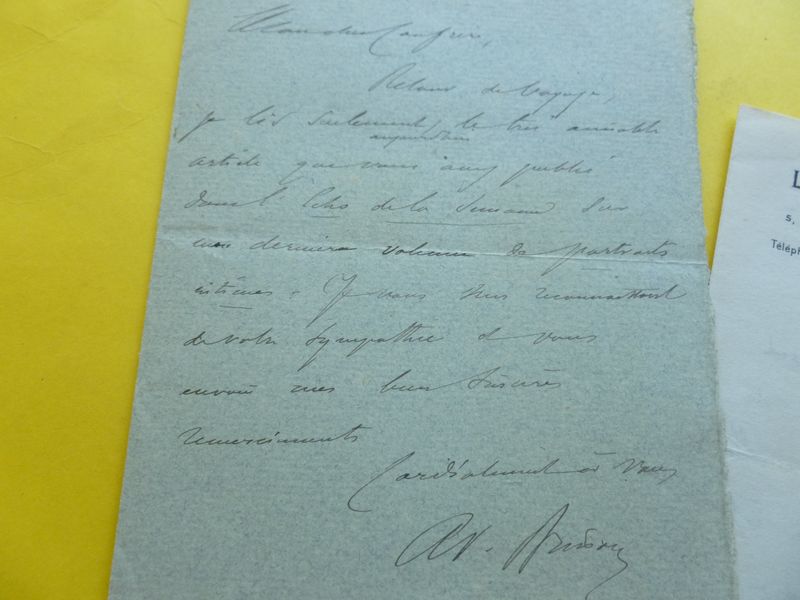 Mon cher Confrère,
Retour de voyage,
je lis seulement
aujourd'hui
le très aimable
article que vous avez publié
dans l'Echo de la Semaine sur
mon dernier volume de portraits
intimes. Je vous suis reconnaissant
de votre sympathie et vous
envoie mes bien sincères
remerciments
Cordialement à vous
Ad. Brisson
L
5,
Téléph